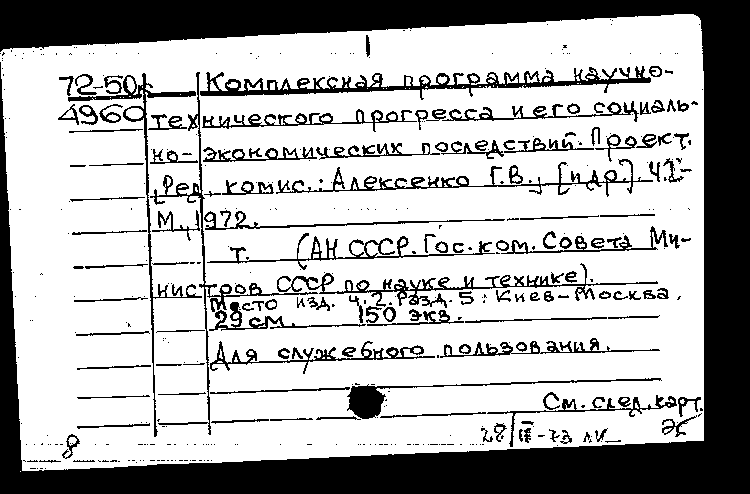 72-50к Комплексная программа научно-
4960 технического прогресса и его социаль-
но-экономических последствий. Проект.
[Ред. комис.: Алексенко Г.В., [и др.]. Ч.I-
М., 1972.
т. (АН СССР. Гос. ком. Совета Ми-
нистров СССР по науке и технике).
Место изд. ч. 2. Разд. 5: Киев-Москва.
29 см. 150 экз.
Для служебного пользования.
См. след. карт.
8 28/III-73